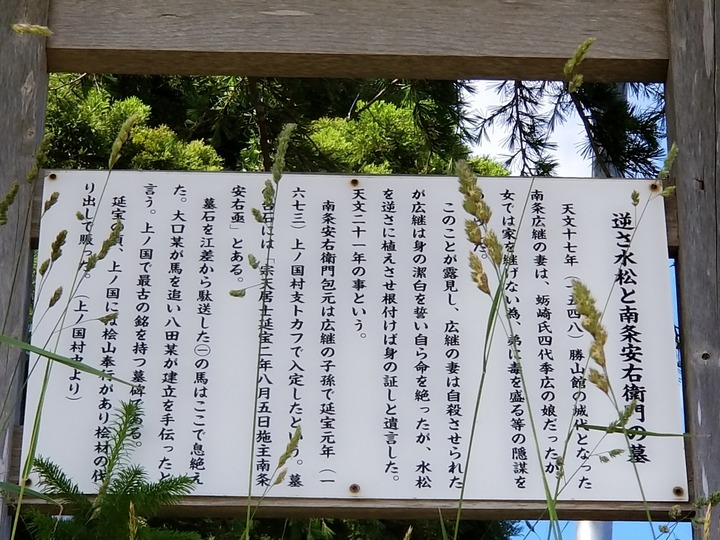 逆さ水松と南条安右衛門の墓
天文十七年（一五四八）勝山館の城代となった
南条広継の妻は、蛎崎氏四代季広の娘だったが、
女では家を継げない為、弟に毒を盛る等の隠謀を
した。
このことが露見し、広継の妻は自殺させられた
が広継は身の潔白を誓い自ら命を絶ったが、水松
を逆さに植えさせ根付けば身の証しと遺言した。
天文二十一年の事という。
南条安右衛門包元は広継の子孫で延宝元年（一
六七三）上ノ国村支トカフで入定したという。墓
台石には「宗天居士延宝二年八月五日施主南条
安右亟」とある。
墓石を江差から駄送した㊀の馬はここで息絶え
た。大口某が馬を追い八田某が建立を手伝ったと
言う。上ノ国で最古の銘を持つ墓碑である。
延宝の頃、上ノ国には桧山奉行があり桧材の伐
り出しで賑った。（上ノ国村史より）